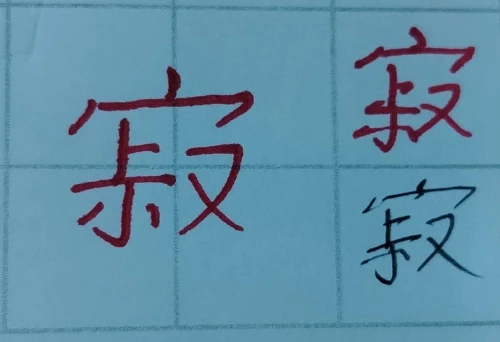 寂 寂
寂